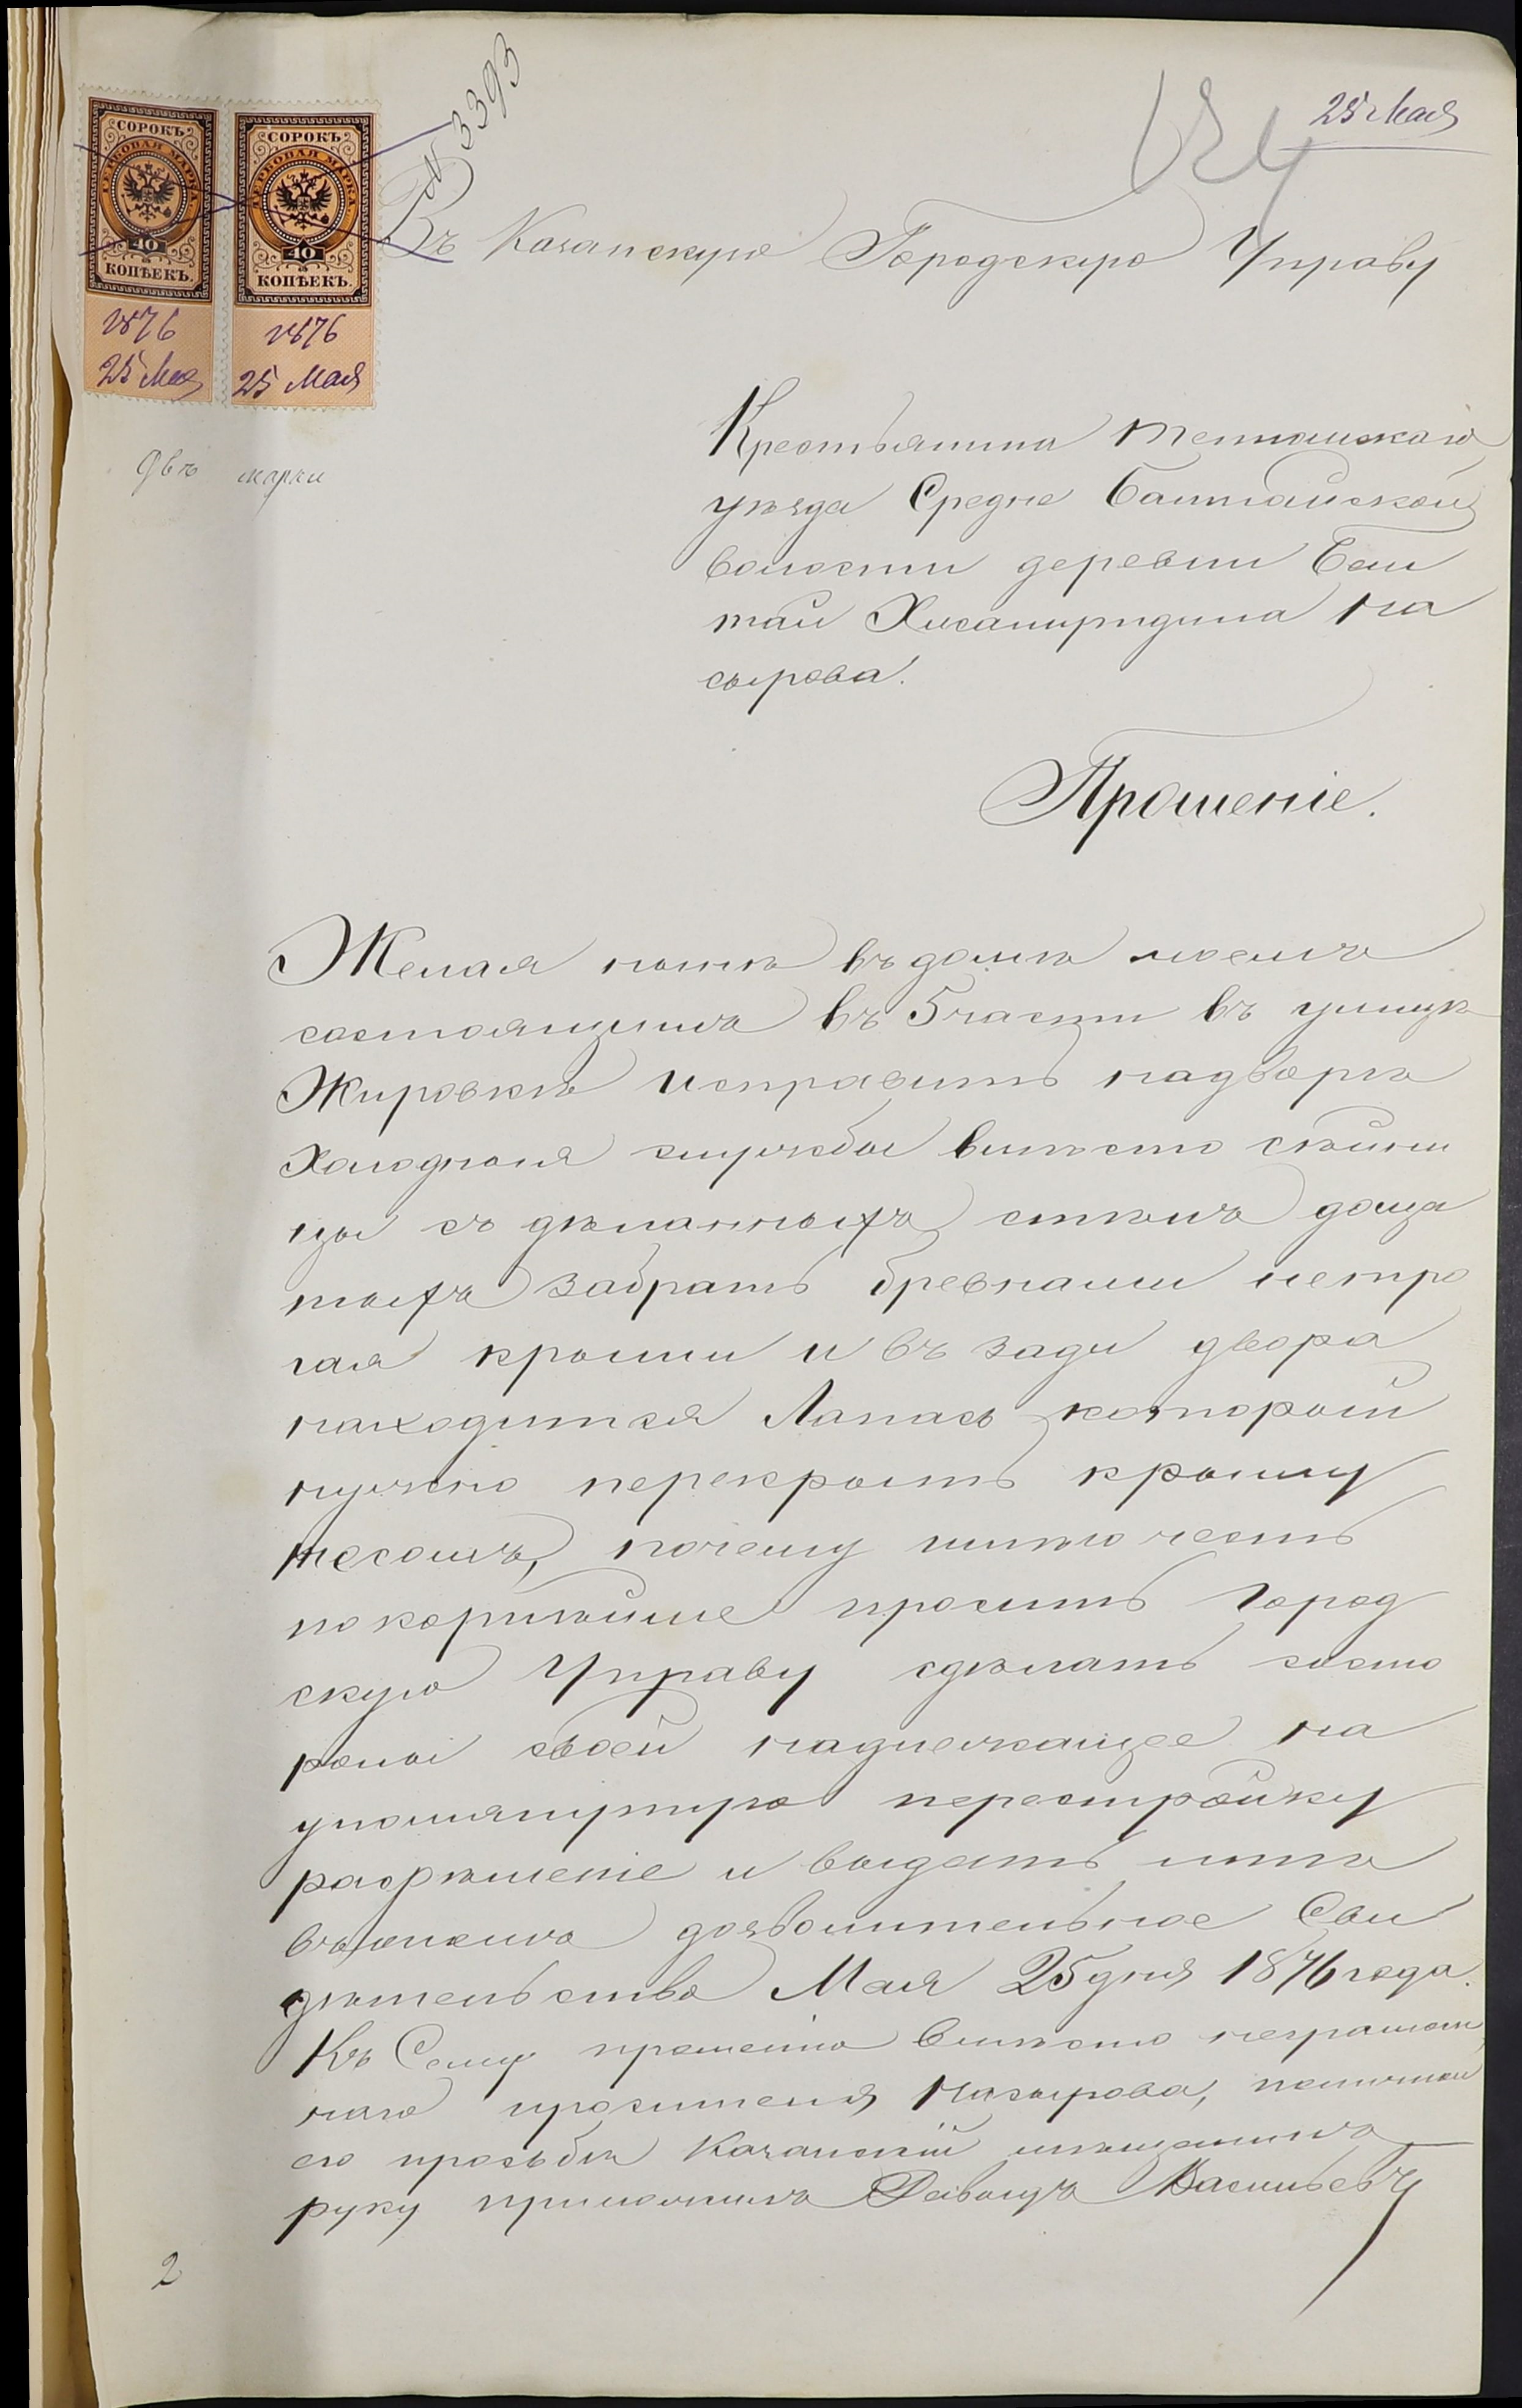 N 3393
25 Мая
124
СОРОКЪ
ГЕРБОВАЯ МАРКА
40
КОПѢЕКЪ.
1876
25 Мая
СОРОКЪ
ГЕРБОВАЯ МАРКА
40
КОПѢЕКЪ.
1876
25 Мая
Двѣ марки
Въ Казанскую Городскую Управу
Крестьянина Тетюшскаго
уѣзда Средне Балтайской
волости деревни Бал
тай Хисамутдина На
сырова.
Прошеніе.
Желая нынѣ въ домѣ моемъ
состоящимъ въ 5 части въ улицѣ
Жировкѣ исправить надворѣ
Холодныя службы вмѣсто
съ дѣланныхъ стѣнъ доща
тыхъ забрать бревнами нетро
гая крыши и въ зади двора
находится Лапасъ который
нужно перекрыть крышу
тесомъ, почему имѣю честь
покорнѣйше просить Город
скую Управу сдѣлать состо
роны своей надлежащее на
упомянутую перестройку
разрѣшеніе и выдать мнѣ
дозволительное Сви
дѣтельство Мая 25 дня 1876 года.
Къ Сему прошенію вмѣсто неграмот
наго просителя Насырова, поличной
его прозьбѣ Казанскій мѣщанинъ
руку приложилъ Давыдъ Васильевъ
2